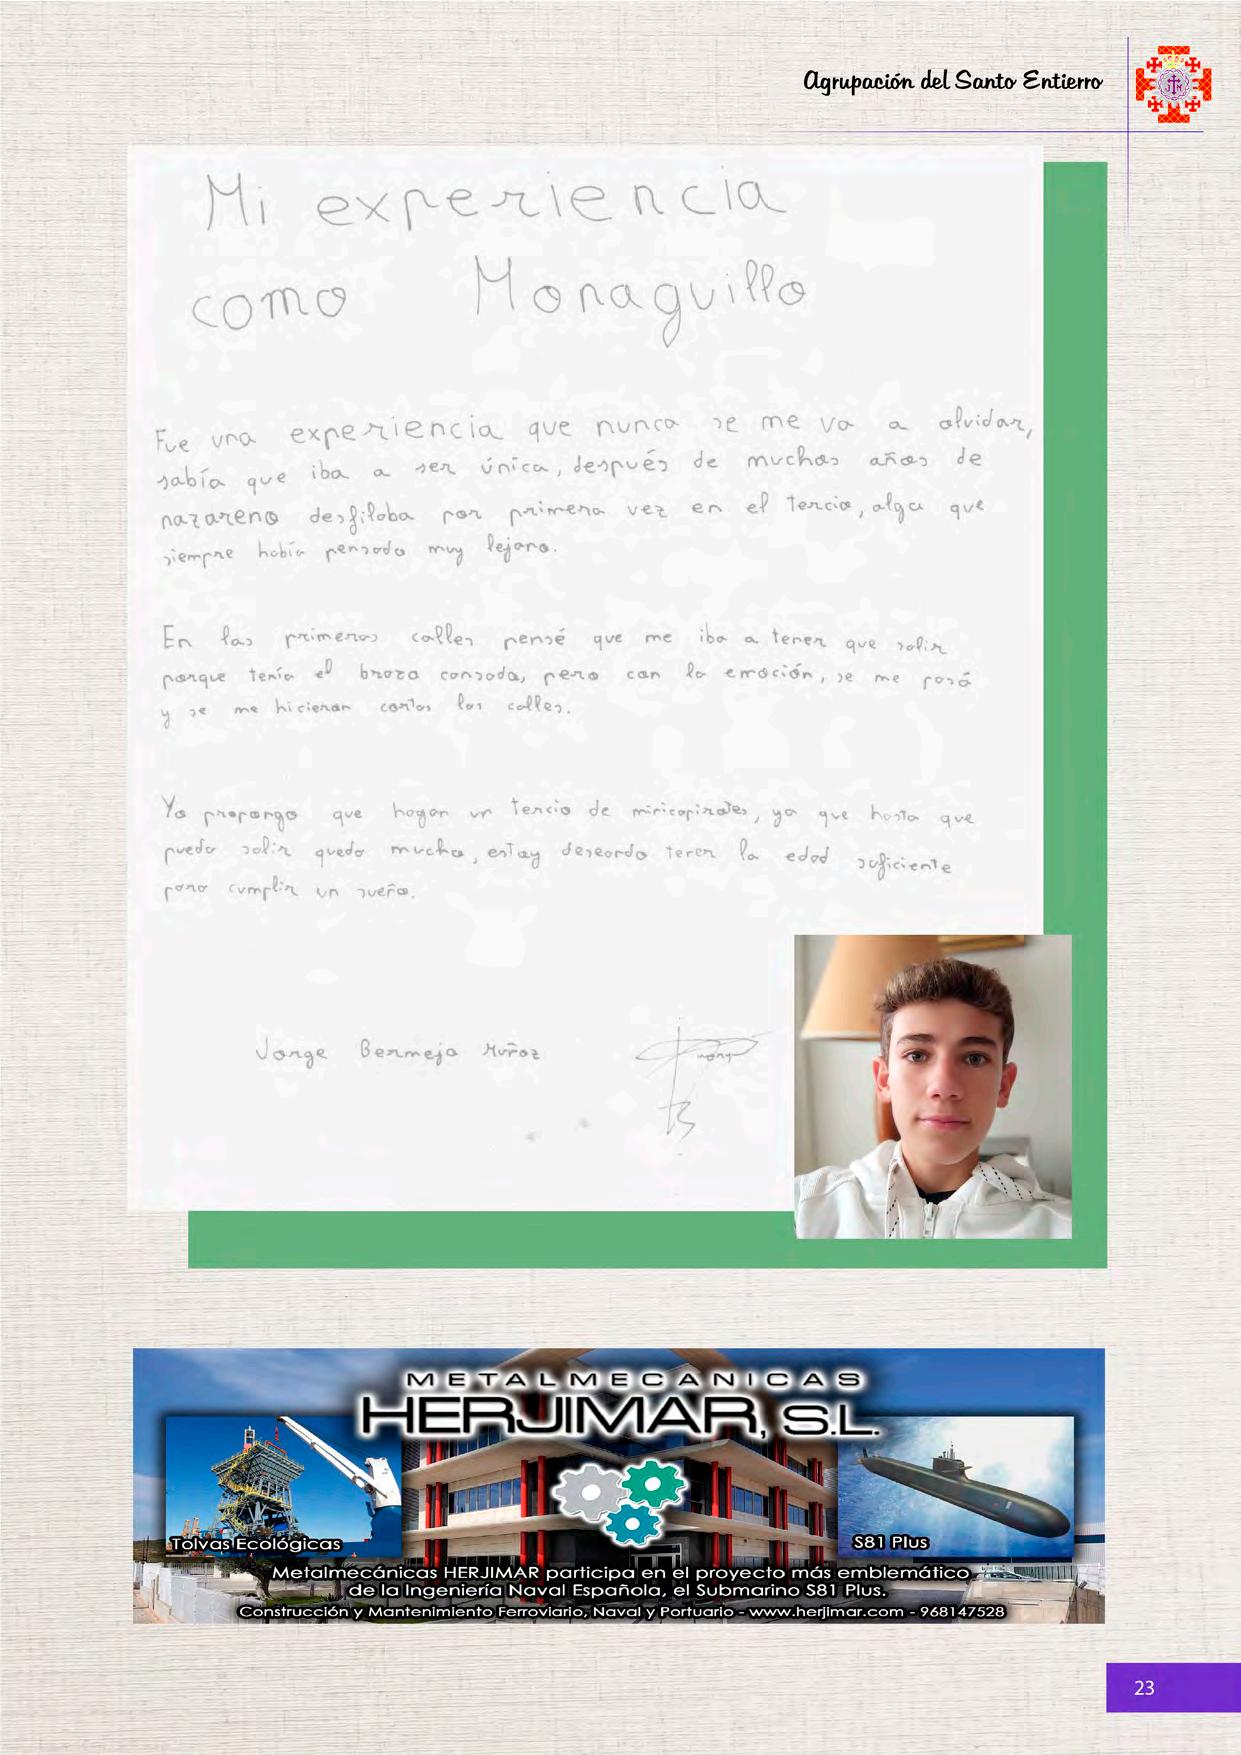 Agrupación del Santo Entierro
Mi experiencia
como Monaguillo
Fue una experiencia que nunca se me va a olvidar,
sabía que iba a ser única, después de muchos años de
nazareno desfilaba por primera vez en el tercio, algo que
siempre había pensado muy lejano.
En las primeras calles pensé que me iba a tener que salir
porque tenía el brazo cansado, pero con la emoción, se me pasó
y se me hicieron cortas las calles.
Yo propongo que hagan un tercio de minicapirotes, ya que hasta que
pueda salir queda mucho, estoy deseando tener la edad suficiente
para cumplir un sueño.
Jorge Bermejo Muñoz
METALMECANICAS
HERJIMAR, S.L.
Tolvas Ecológicas
S81 Plus
Metalmecánicas HERJIMAR participa en el proyecto más emblemático
de la Ingeniería Naval Española, el Submarino S81 Plus.
Construcción y Mantenimiento Ferroviario, Naval y Portuario - www.herjimar.com - 968147528
23